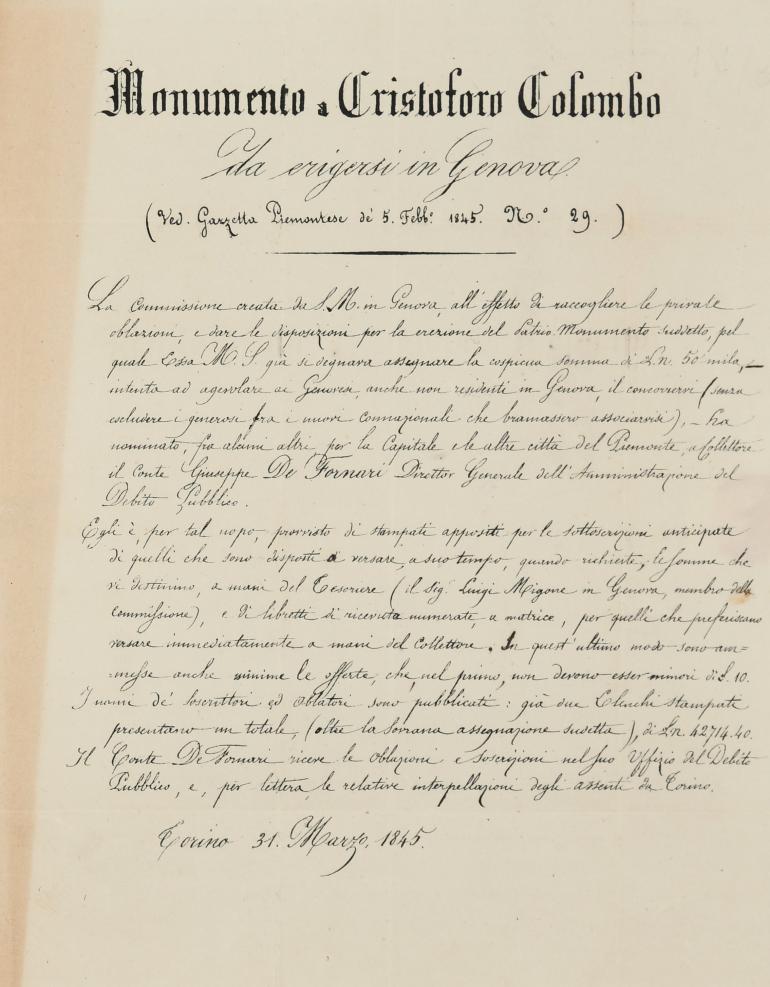 Monumento a Cristoforo Colombo
da erigersi in Genova.
(Ved. Garzetta Piemontese de' 5. Febb.º 1845. N.º 29. )
La Commissione creata da S. M. in Genova, all'effetto di raccogliere le private
oblazioni, e dare le disposizioni per la erezione del Patrio Monumento suddetto, pel
quale Essa M. S. già si degnava assegnare la cospicua somma di L.n. 50 mila, —
intenta ad agevolare ai Genovesi, anche non residenti in Genova, il concorrervi (senza
escludere i generosi fra i nuovi connazionali che bramassero associarvisi), — ha
nominato, fra alcuni altri per la Capitale e le altre città del Piemonte, a Collettore
il Conte Giuseppe De Fornari Direttor Generale dell'Amministrazione del
Debito Pubblico.
Egli è, per tal uopo, provvisto di stampati appositi per le sottoscrizioni anticipate
di quelli che sono disposti a versare, a suo tempo, quando richieste, le somme che
vi destinino, a mani del Tesoriere (il Sig.r Luigi Migone in Genova, membro della
Commissione), e di libretti di ricevuta numerate, a matrice, per quelli che preferiscano
versare immediatamente a mani del Collettore. In quest'ultimo modo sono am=
=messe anche minime le offerte, che, nel primo, non devono esser minori di L. 10.
I nomi de' soscrittori ed oblatori sono pubblicati: già due Elenchi stampati
presentano un totale, (oltre la Sovrana assegnazione sudetta), di L.n. 42714.40.
Il Conte De Fornari riceve le oblazioni e soscrizioni nel suo Uffizio del Debito
Pubblico, e, per lettera, le relative interpellazioni degli assenti da Torino.
Torino 31. Marzo, 1845.